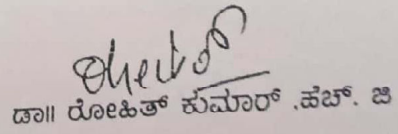 ಡಾ|| ರೋಹಿತ್ ಕುಮಾರ್ .ಹೆಚ್. ಜಿ